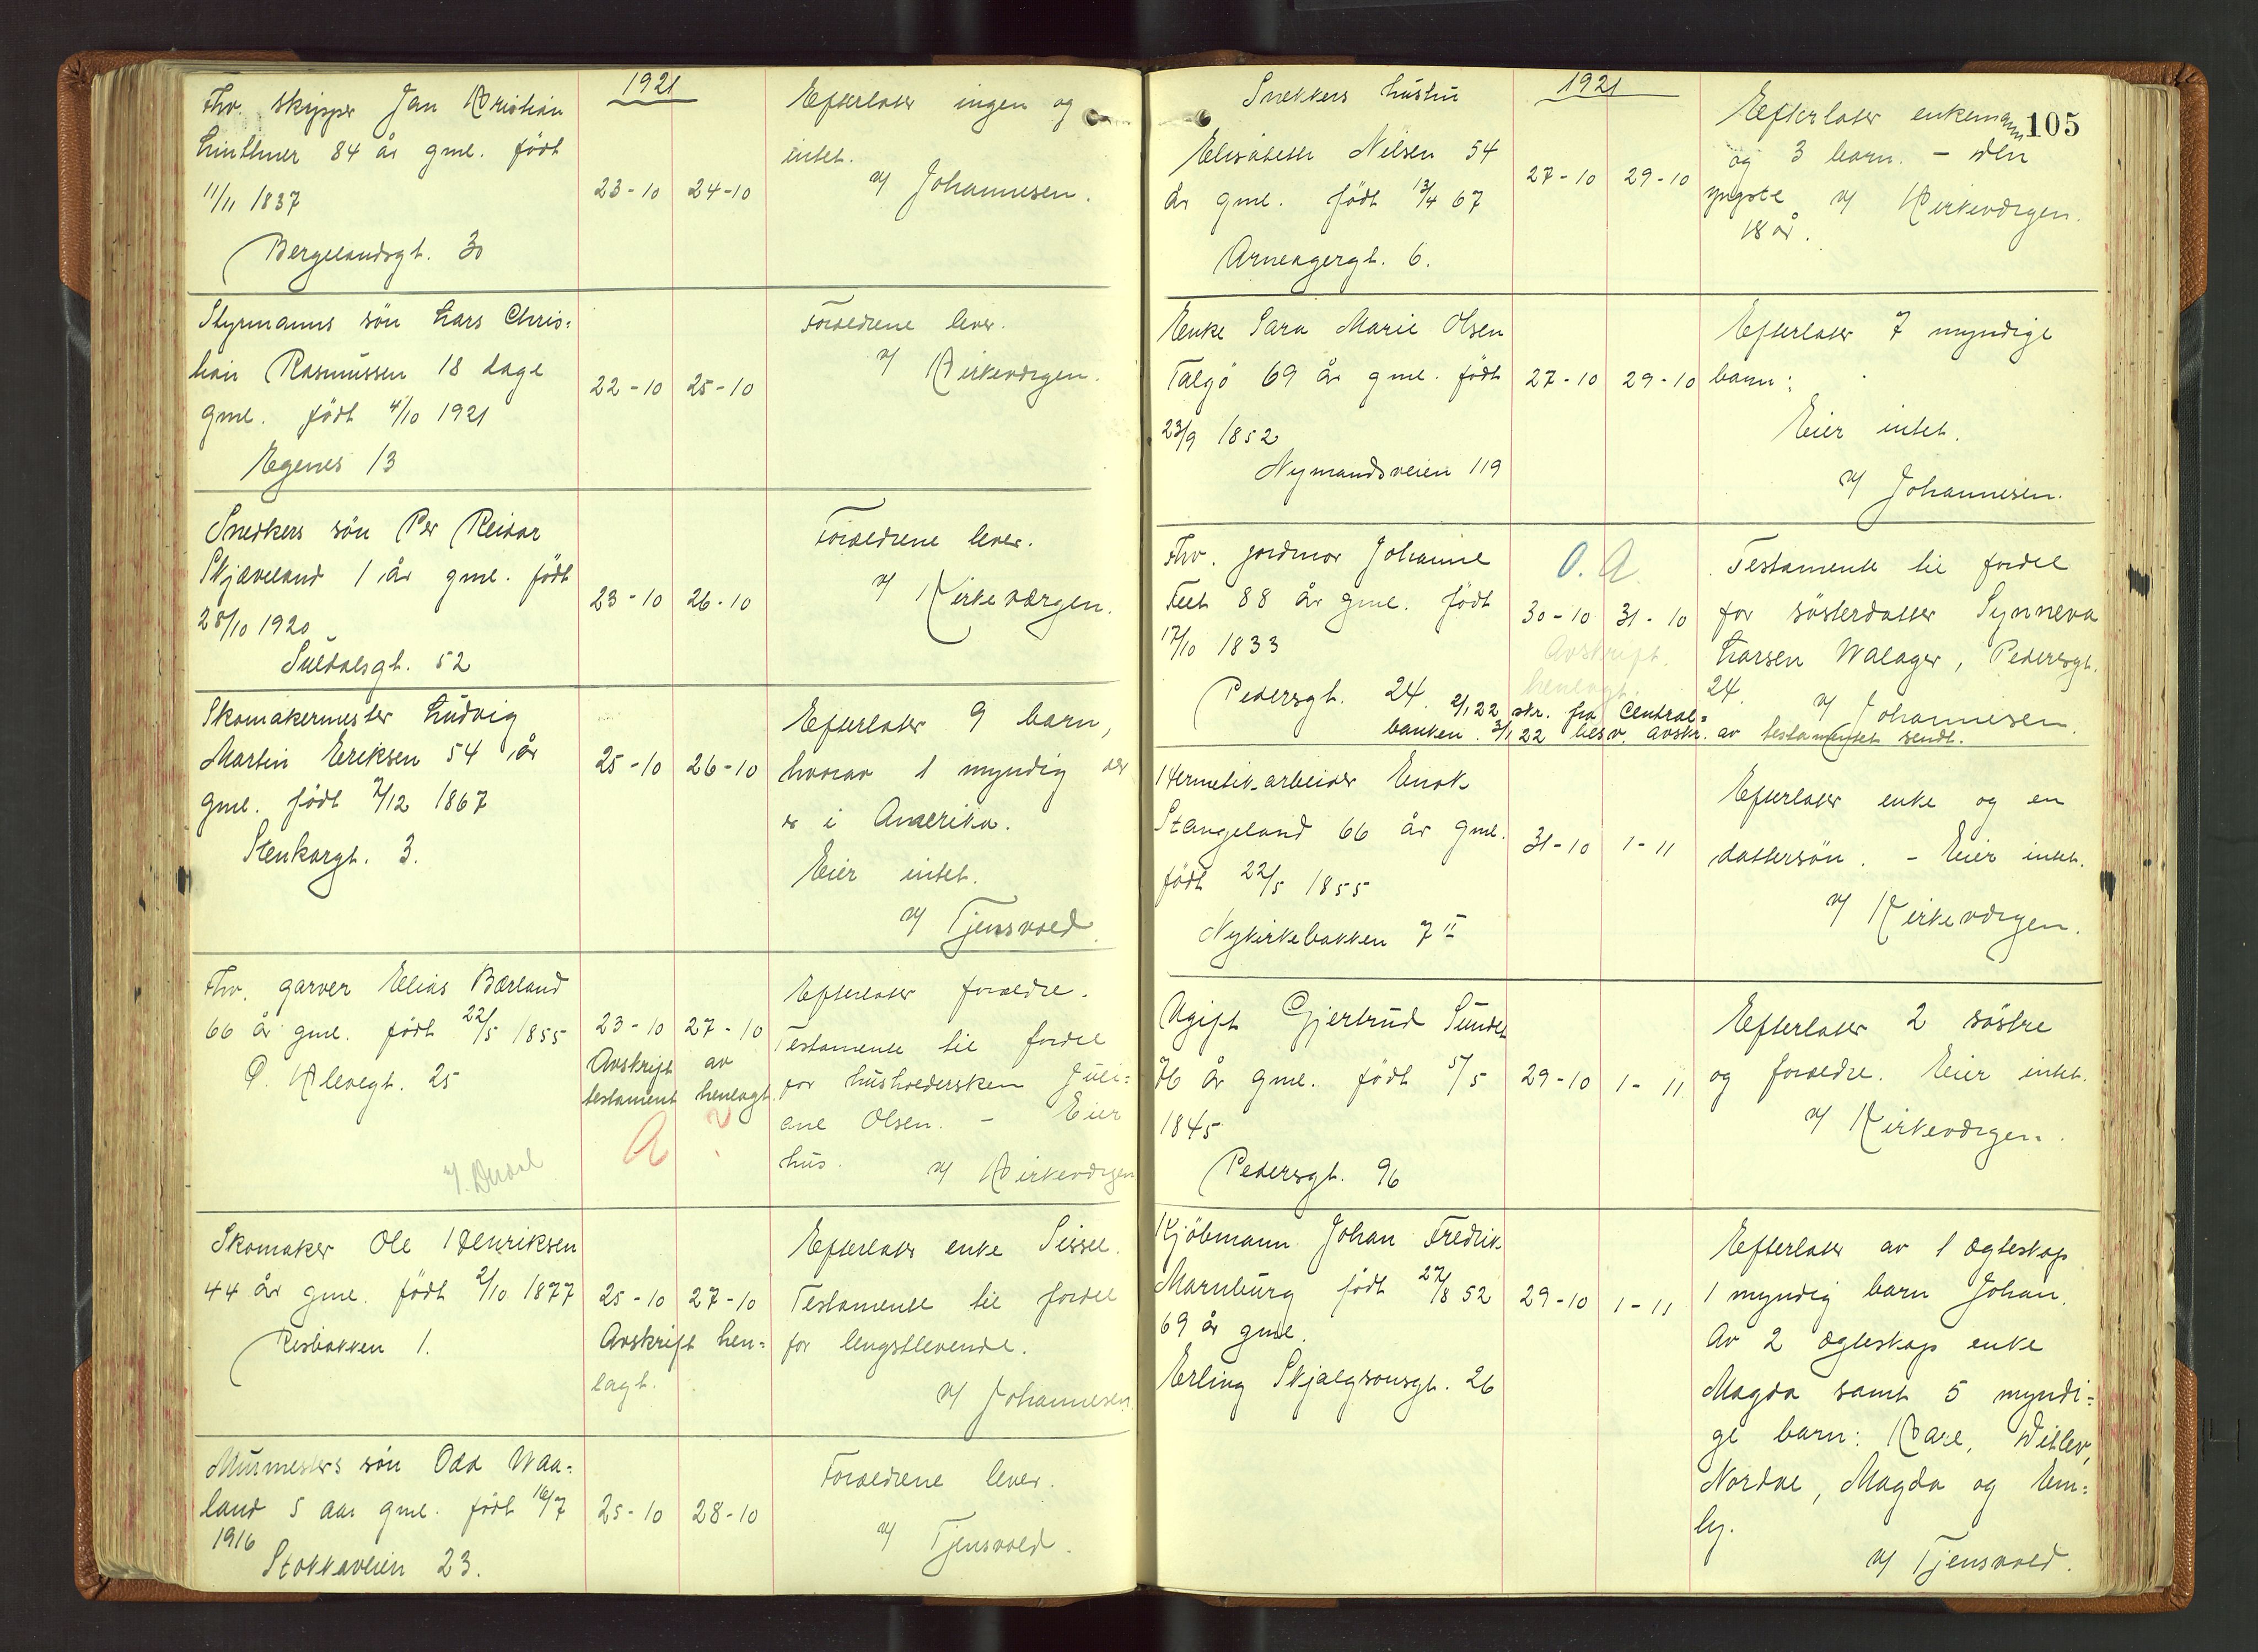 1921
Fhv. skipper Jan Kristian
Linthner 84 år gml. født
11/11 1837
Bergelandsgt. 30
23-10 24-10
Efterlater ingen og
intet.
v/ Johannesen.
Styrmanns søn Lars Chris=
tian Rasmussen 18 dage
gml. født 4/10 1921
Egenes 13
22-10 25-10
Forældrene lever.
v/ Kirkeværgen.
Snedkers søn Per Reidar
Skjæveland 1 år gml. født
28/10 1920
Suldalsgt. 52
23-10 26-10
Forældrene lever.
v/ Kirkeværgen.
Skomakermester Ludvig
Martin Eriksen 54 år
gml. født 7/12 1867
Stenkargt. 3.
25-10 26-10
Efterlater 9 barn,
hvorav 1 myndig der
er i Amerika.
Eier intet.
v/ Tjensvold.
Fhv. garver Elias Bærland
66 år gml. født 22/5 1855
P. Klowgt. 25
23-10 27-10
Avskrift av
testament henlagt.
A
Efterlater foreldre.
Testamente til fordel
for husholdersken Juli=
ane Olsen. - Eier
hus.
v/ Kirkeværgen
Skomaker Ole Henriksen
44 år gml. født 2/10 1877
Risbakken 1.
25-10 27-10
Avskrift hen=
lagt.
Efterlater enke Sissel.
Testamente til fordel
for lengstlevende.
v/ Johannesen.
Murmesters søn Odd Waa=
land 5 aar gml. født 16/7
1916
Stokkaveien 23.
25-10 28-10
Forældrene lever.
v/ Tjensvold.
105
1921
Snekkers hustru
Elisabeth Nilsen 54
år gml. født 13/4 67
Arneagergt. 6.
27-10 29-10
Efterlater enkemann
og 3 barn. - den
yngste v/ Kirkeværgen.
18 år.
Enke Sara Marie Olsen
Talgö 69 år gml. født
23/9 1852
Nymandsveien 119
27-10 29-10
Efterlater 7 myndige
barn:
Eier intet.
v/ Johannesen.
Fhv. jordmor Johanne
Feet 88 år gml. født
17/10 1833
Pedersgt. 24.
O. A.
30-10 31-10
Avskrift.
henlagt.
Testamente til fordel
for søsterdatter Synneva
Larsen Walager, Pedersgt.
24.
v/ Johannesen.
2/1 22 skr. fra Central=
banken. 3/1 22 besv. avskr. av testamentet sendt.
Hermetik-arbeider Enok
Stangeland 66 år gml.
født 22/5 1855
Nykirkebakken 7 II
31-10 1-11
Efterlater enke og en
dattersøn. - Eier intet.
v/ Kirkeværgen.
Ugift Gjertrud Sunde
76 år gml. født 5/5
1845
Pedersgt. 96
29-10 1-11
Efterlater 2 søstre
og foreldre. Eier intet.
v/ Kirkeværgen.
Kjöbmann Johan Fredrik
Marnburg født 27/8 52
69 år gml.
Erling Skjalgsonsgt. 26
29-10 1-11
Efterlater av 1 ægteskap
1 myndig barn Johan.
Av 2 ægteskap enke
Magda samt 5 myndi=
ge barn: Karl, Ditlev,
Nordal, Magda og Em=
ly.
v/ Tjensvold.